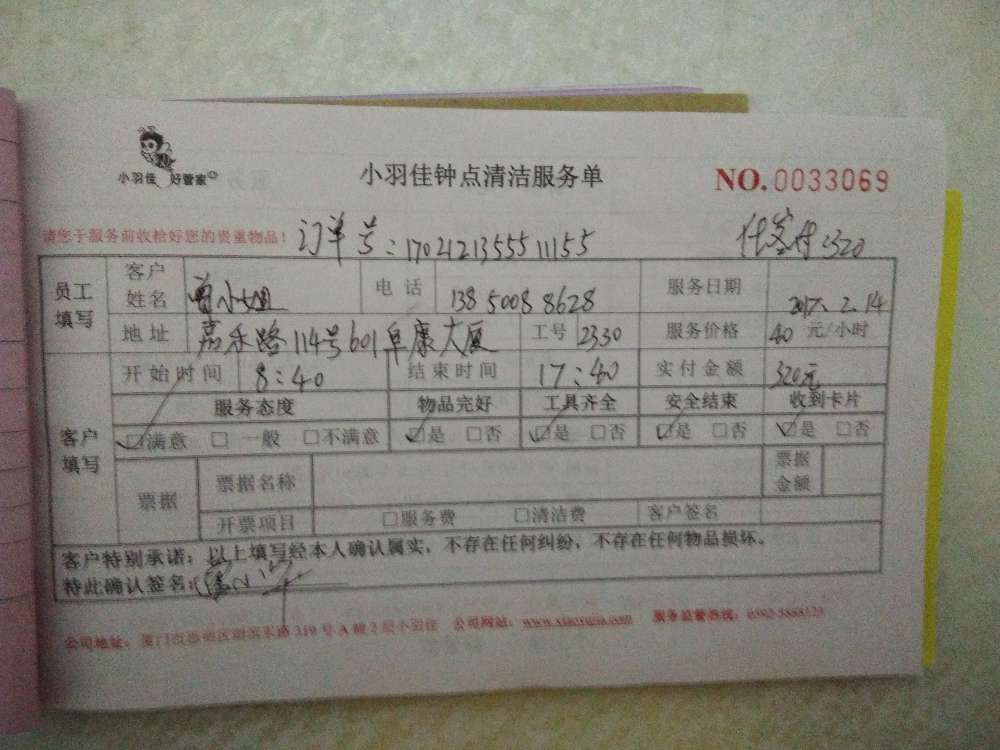 小羽佳 好管家
小羽佳钟点清洁服务单
NO. 0033069
请您于服务前收拾好您的贵重物品！
订单号：17021213555511155
付：320
员工填写
客户姓名 曾小姐 电话 13850088628 服务日期 2017.2.14
地址 嘉禾路114号601阜康大厦 工号 2330 服务价格 40 元/小时
客户填写
开始时间 8:40 结束时间 17:40 实付金额 320元
服务态度 物品完好 工具齐全 安全结束 收到卡片
☑满意 □一般 □不满意 ☑是 □否 ☑是 □否 ☑是 □否 ☑是 □否
票据 票据名称 票据金额
开票项目 □服务费 □清洁费 客户签名
客户特别承诺：以上填写经本人确认属实，不存在任何纠纷，不存在任何物品损坏。
特此确认签名：
公司地址：厦门市思明区湖滨东路319号A幢2层小羽佳 公司网站：www.xiaoyujia.com 服务监督热线：